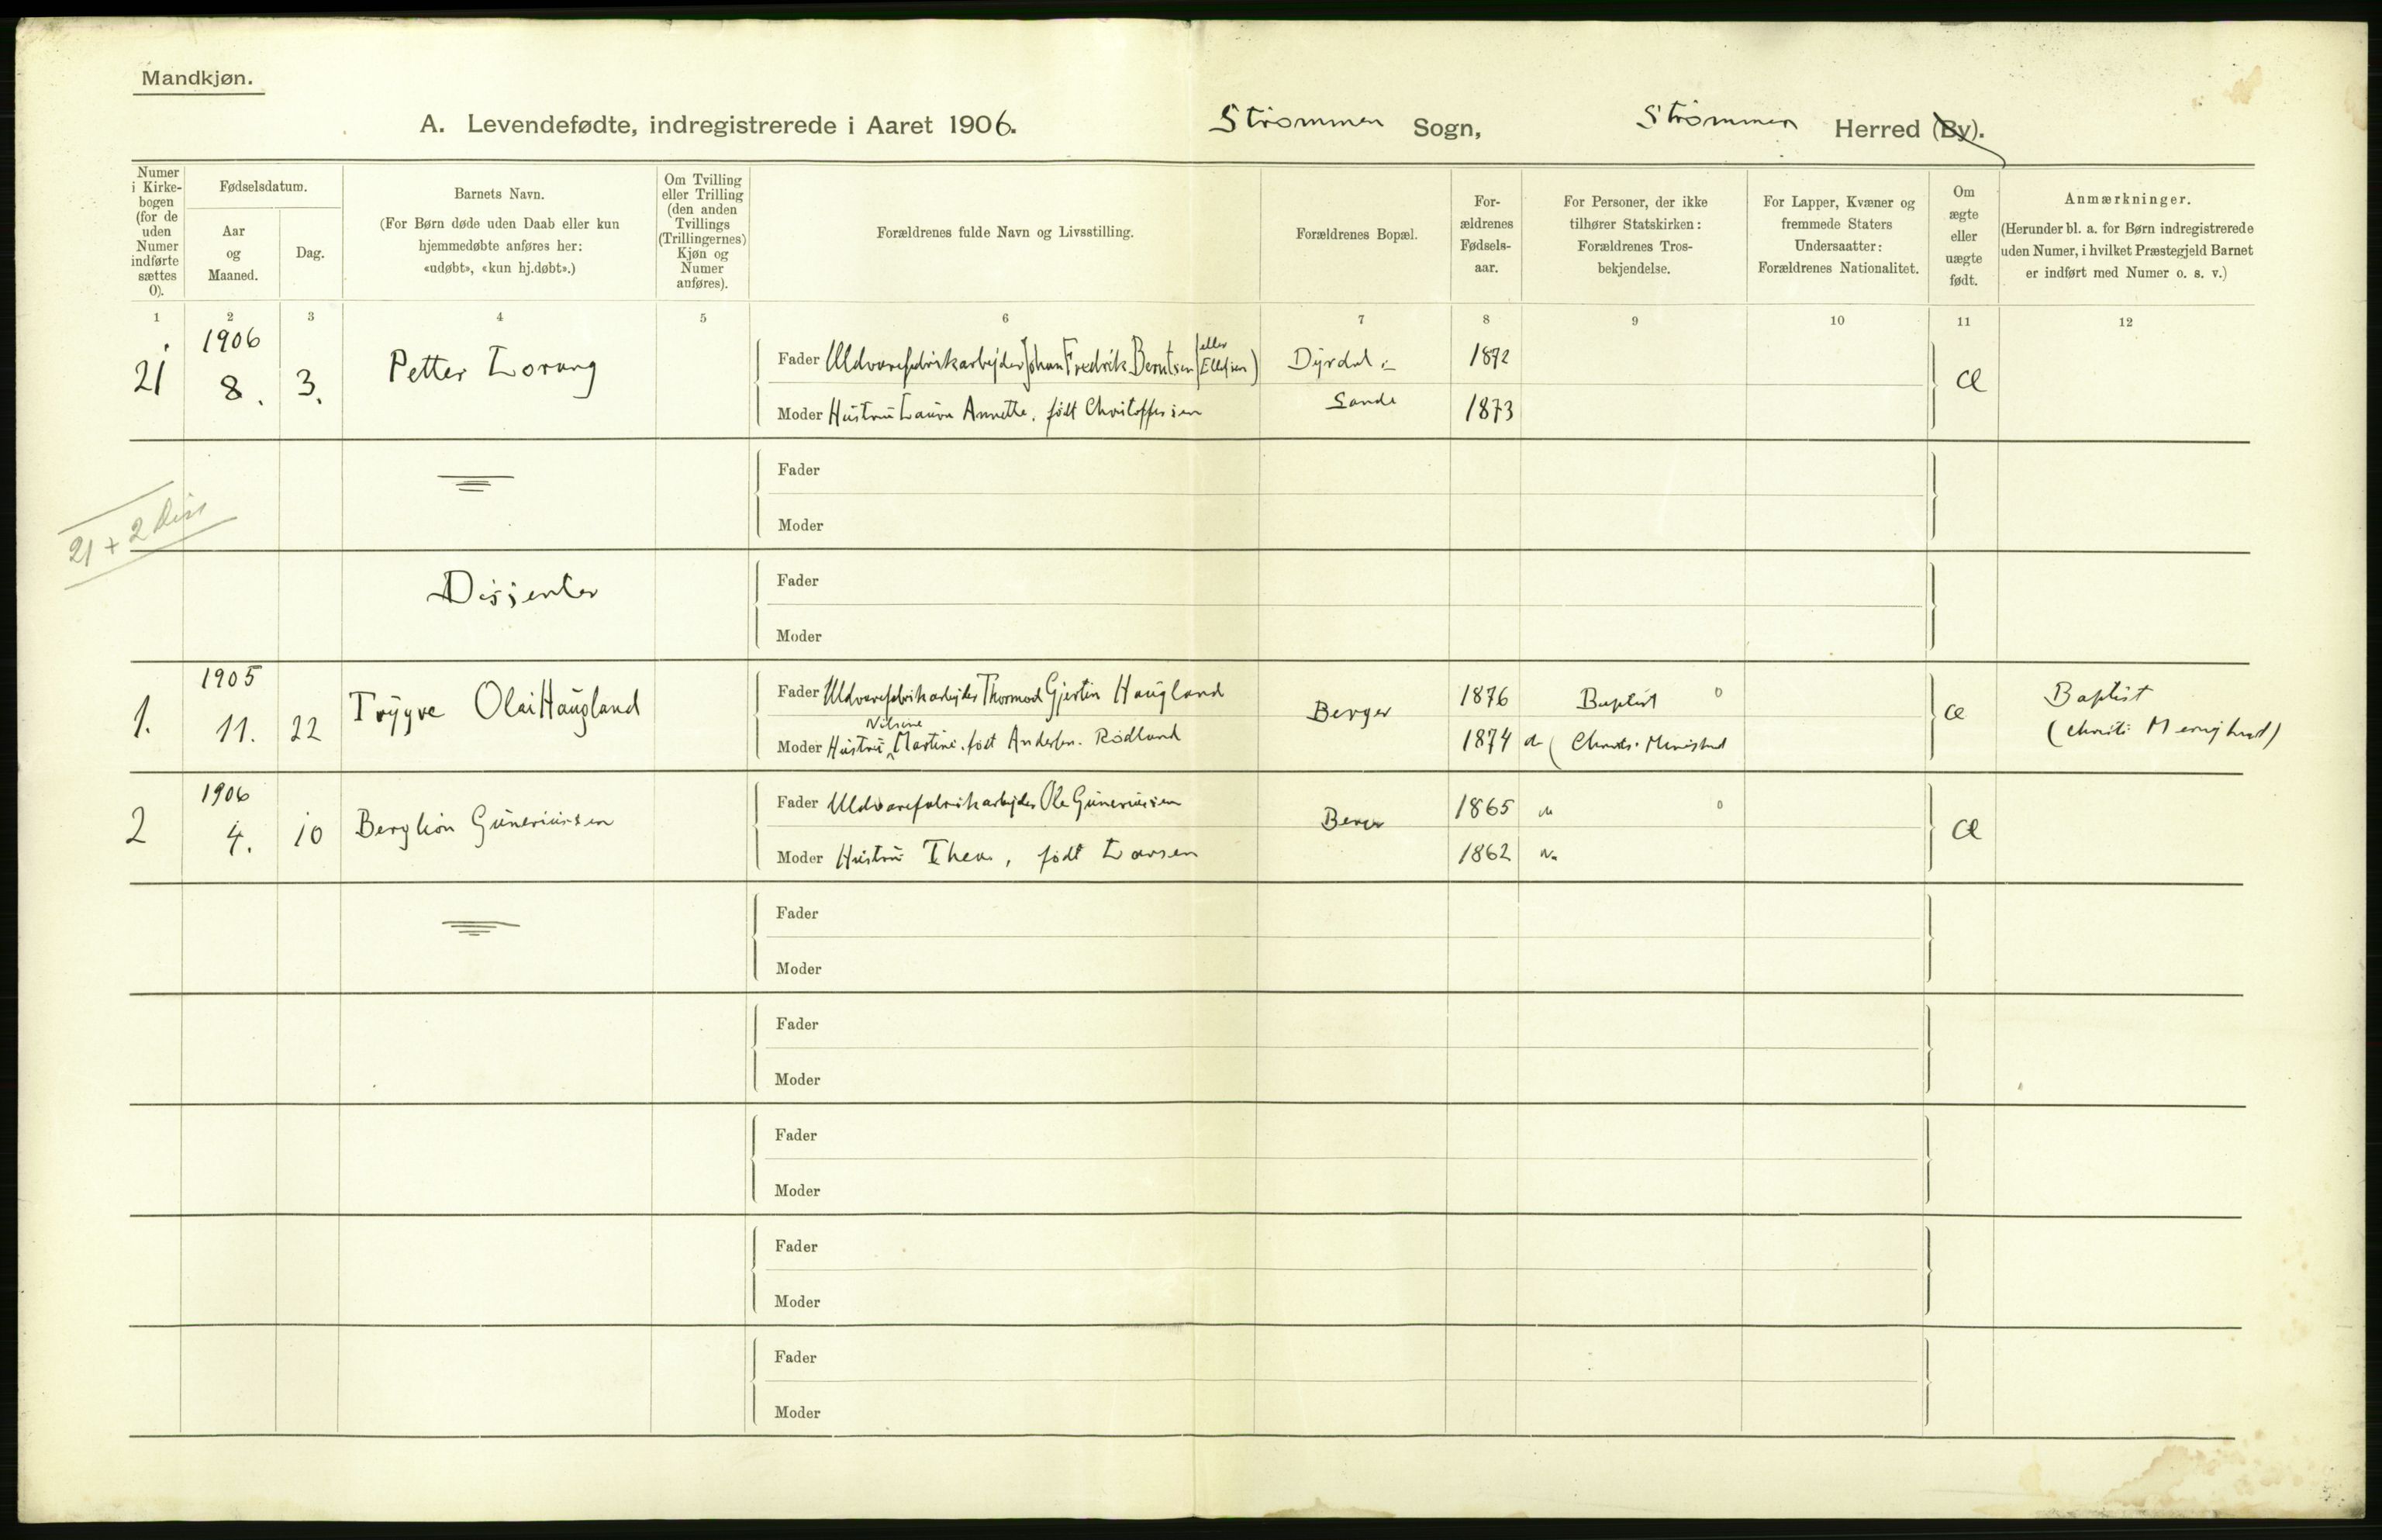 Mandkjøn.
A. Levendefødte, indregistrerede i Aaret 1906. Strømmen Sogn, Strømmen Herred (By).
Numer i Kirke-bogen (for de uden Numer indførte sættes 0).
Fødselsdatum.
Aar og Maaned.
Dag.
Barnets Navn.
(For Børn døde uden Daab eller kun
hjemmedøbte anføres her:
«udøbt», «kun hj.døbt».)
Om Tvilling
eller Trilling
(den anden
Tvillings
(Trillingernes)
Kjøn og
Numer
anføres).
Forældrenes fulde Navn og Livsstilling.
Forældrenes Bopæl.
For-
ældrenes
Fødsels-
aar.
For Personer, der ikke
tilhører Statskirken:
Forældrenes Tros-
bekjendelse.
For Lapper, Kvæner og
fremmede Staters
Undersaatter:
Forældrenes Nationalitet.
Om
ægte
eller
uægte
født.
Anmærkninger.
(Herunder bl. a. for Børn indregistrerede
uden Numer, i hvilket Præstegjeld Barnet
er indført med Numer o. s. v.)
1 2 3 4 5 6 7 8 9 10 11 12
21 1906 8. 3. Petter Lorang
Fader Uldvarefabrikarbejder Johan Fredrik Berntsen (eller Ellefsen) Dyrdal 1872 Æ
Moder Hustru Laura Annette, født Christoffersen Sande 1873
Fader
Moder
21 + 2 Diss
Dissenter
Fader
Moder
1. 1905 11. 22 Trygve Olai Haugland
Fader Uldvarefabrikarbejder Thormod Gjertin Haugland Berger 1876 Baptist 0 Æ Baptist
Moder Hustru Nilsine Martine, født Andersen Rødland 1874
2 1906 4. 10 Berglion Guneriussen
Fader Uldvarefabrikarbejder Ole Guneriussen Berger 1865 0 Æ
Moder Hustru Thea, født Larsen 1862
Fader
Moder
Fader
Moder
Fader
Moder
Fader
Moder
Fader
Moder